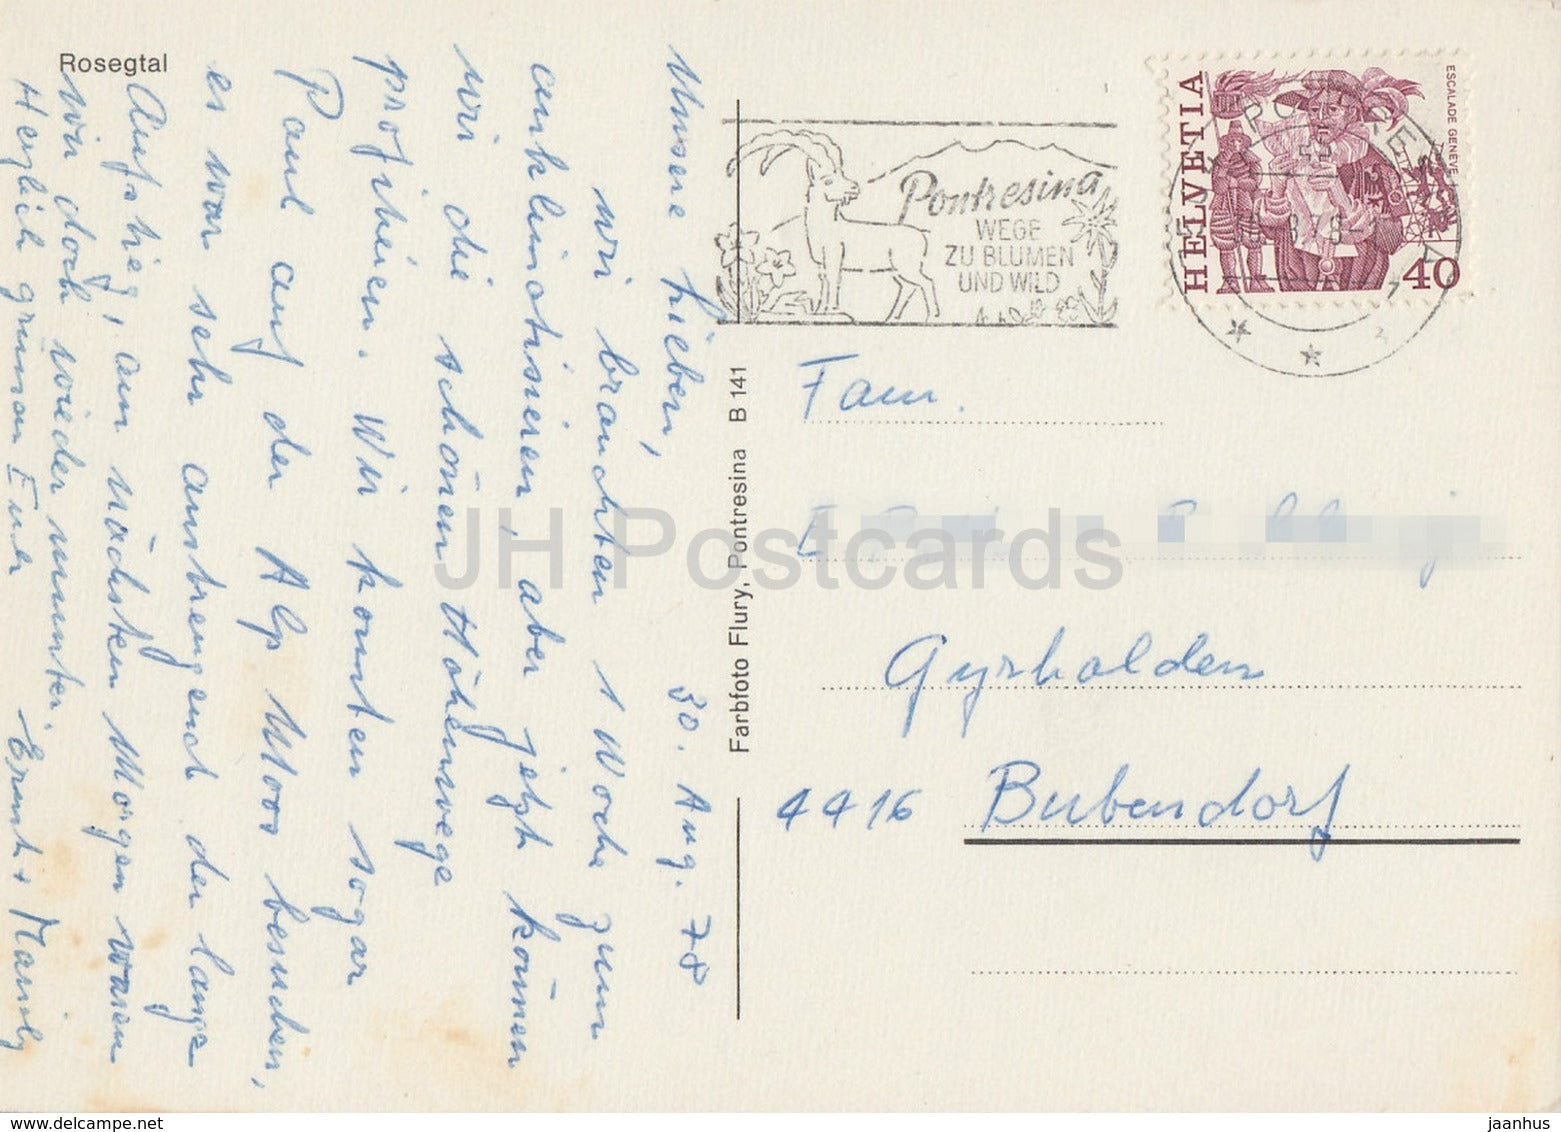 Rosegtal
Unsere Lieben, 30. Aug. 78
wir brauchten 1 Woche zum
anklimatisieren, aber jetzt können
wir die schönen Höhenwege
profitieren. Wir konnten sogar
Paul auf der Alp Moos besuchen,
es war sehr anstrengend der lange
Aufstieg, am nächsten Morgen waren
wir doch wieder munter.
Herzlich grüssen Euch
Farbfoto Flury, Pontresina B 141
Pontresina
WEGE
ZU BLUMEN
UND WILD
HELVETIA
ESCALADE GENÈVE
40
Fam.
Gyrhalden
4416 Bubendorf
JH Postcards
jaanhus